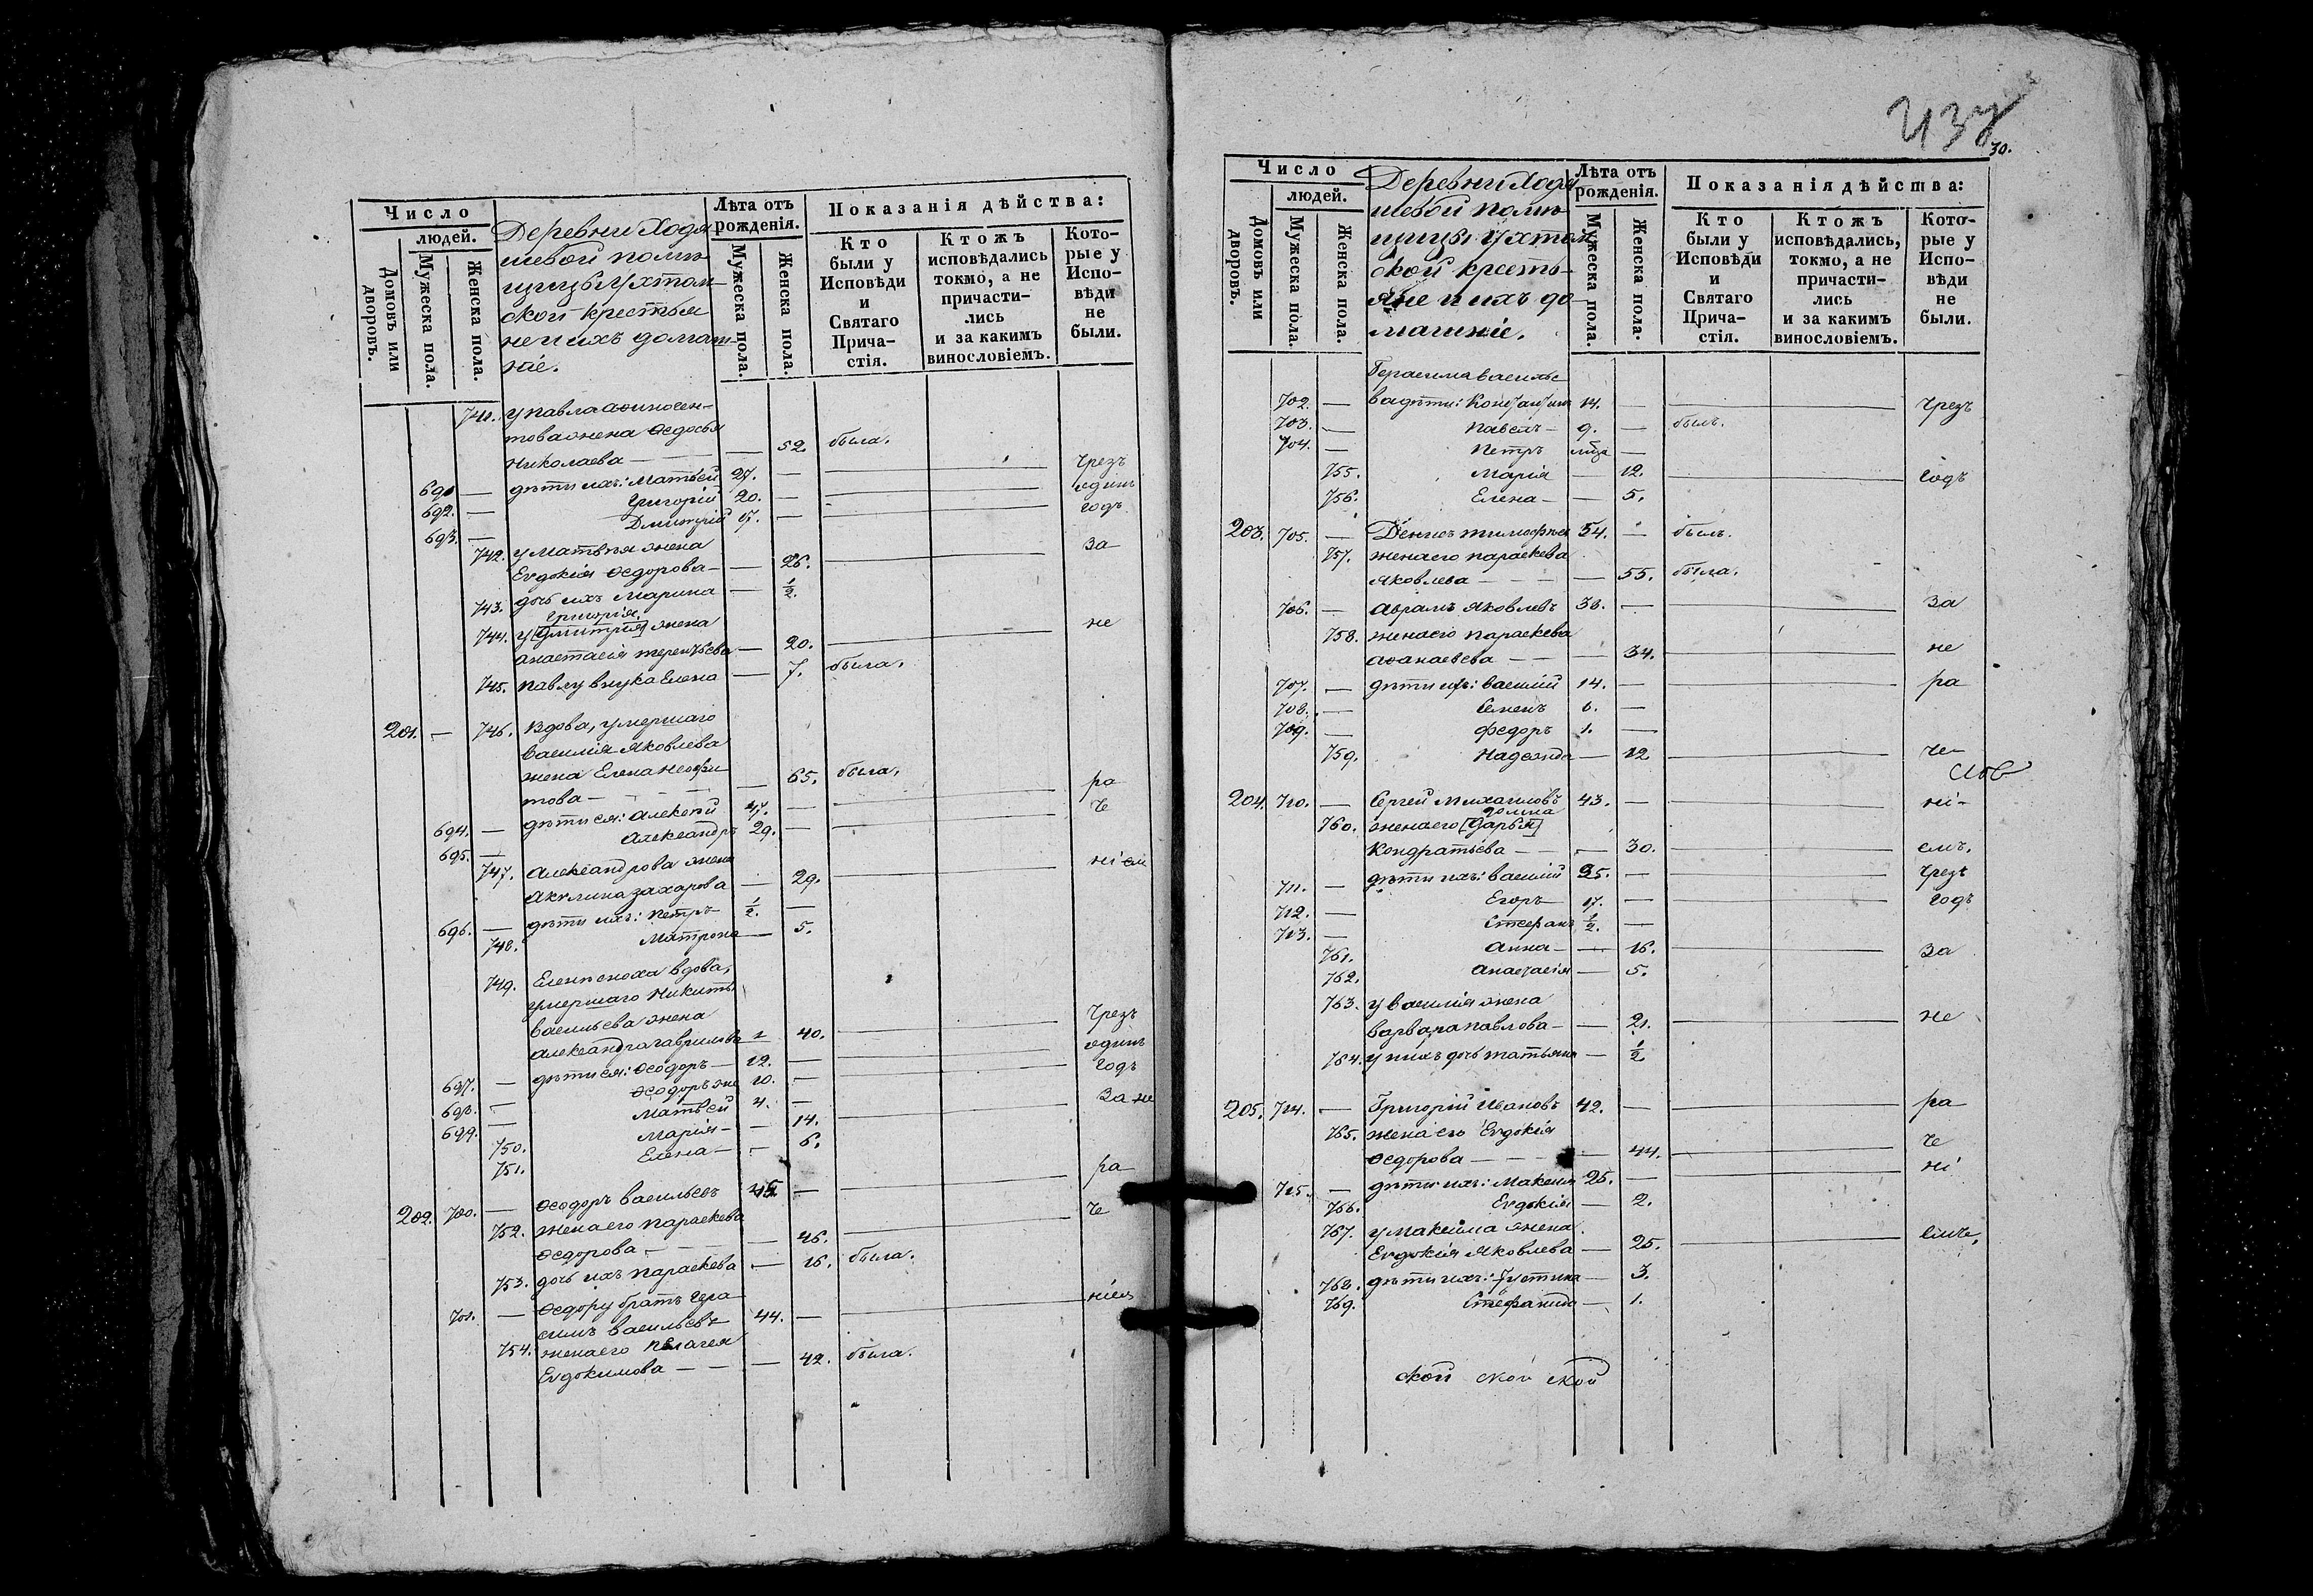 Число
людей.
Домовъ или дворовъ.
Мужеска пола.
Женска пола.
Деревни Ходя
шевой помѣ
щицы Ухтом
ской крестья
не и ихъ домаш
ніе.
Лѣта отъ рожденія.
Мужеска пола.
Женска пола.
Показанія дѣйства:
Кто были у Исповѣди и Святаго Прича- стія.
Ктожъ исповѣдались токмо, а не причасти- лись и за какимъ винословіемъ.
Кото- рые у Испо- вѣди не были.
741. у Павла Афиноген-
това жена Ѳедосья
Николаева — — 52. была.
691 — дѣти ихъ: Матвей 27. — чрезъ
692. — Григорій 20. — одинъ
693. — Дмитрій 17. — годъ
742. у Матвѣя жена
Евдокія Ѳедорова — — 26. за
743. дочь ихъ Марина — ½.
Григорія
744. у [Дмитрія] жена не
Анастасія Терентьева — 20.
745. Павлу внука Елена — 7. была.
201. — 746. Вдова, умершаго
Василія Яковлева
жена Елена Неофи
това — — 65. была.
694. — дѣти ея: Алексѣй 47. — ра
695. — Александръ 29. — че
747. Александрова жена
Акулина Захарова — 29. ні ем
696. — дѣти ихъ: Петръ ½. —
748. Матрона — 5.
749. Елены сноха вдова,
умершаго Никиты
Васильева жена
Александра Гаврилова — 40. чрезъ
697. — дѣти ея: Ѳеодоръ — 12. — одинъ
698. — Ѳеодоръ же 10. — годъ
699. — Матвей 4. —
750. Марія — — 14. за не
751. Елена — — 6.
202. 700. — Ѳеодоръ Васильевъ 45 — ра
752. жена его Параскева
Ѳедорова — — 46. че
753. дочь ихъ Параскева — 16. была.
701. — Ѳедору братъ Гера
симъ Васильевъ 44. — ніем
754. жена его Пелагея
Евдокимова — — — 42. была.
30.
Число
людей.
Домовъ или дворовъ.
Мужеска пола.
Женска пола.
Деревни Ходя
шевой помѣ
щицы Ухтом
ской кресть
яне и ихъ до
машніе.
Лѣта отъ рожденія.
Мужеска пола.
Женска пола.
Показанія дѣйства:
Кто были у Исповѣди и Святаго Прича- стія.
Ктожъ исповѣдались, токмо, а не причасти- лись и за какимъ винословіемъ.
Кото- рые у Испо- вѣди не были.
Герасима Василье
702. — ва дѣти: Константинъ 14. — чрезъ
703. — Павелъ — 9. — былъ.
704. — Петръ —
755. Марія — 12. годъ
756. Елена — — 5.
203. 705. — Денисъ Тимофѣев 54. — былъ.
757. жена его Параскева
Яковлева — — — 55. была.
706. — Аврамъ Яковлевъ 38. — за
758. жена его Параскева
Афанасьева — — — 34. не
707. — дѣти их: Василій 14. — ра
708. — Семенъ 6. —
709. — Федоръ 1. —
759. Надежда — 12 че
слов
204. 710. — Сергей Михаиловъ 43. — ні-
Домна
760. жена его [Дарья]
Кондратьева — — 30. емъ.
711. — дѣти ихъ: Василій 25. — чрезъ
712. — Егоръ 17. — годъ
713. — Стефанъ ½. —
761. Анна — — 16. за
762. Анастасія — 5.
763. у Василія жена
Варвара Павлова — — 21. не
764. у нихъ дочь Татьяна — ½
205. 714. — Григорій Ивановъ 42. — ра
765. жена его Евдокія
Ѳедорова — — — 44. че
715. — дѣти ихъ: Максимъ 25. — ні
766. Евдокія — 2.
767. у Максима жена
Евдокія Яковлева — 25. емъ.
768. дѣти ихъ: Устина — 3.
769. Стефанида — 1.
ской ской ской